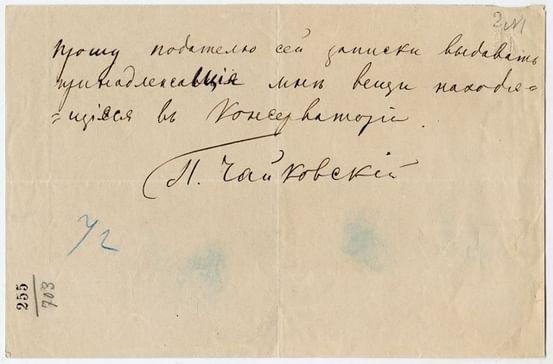 2 №1
Прошу подателю сей записки выдавать
принадлежавшія мнѣ вещи находя=
=щіяся въ Консерваторіи.
П. Чайковскій
255
703